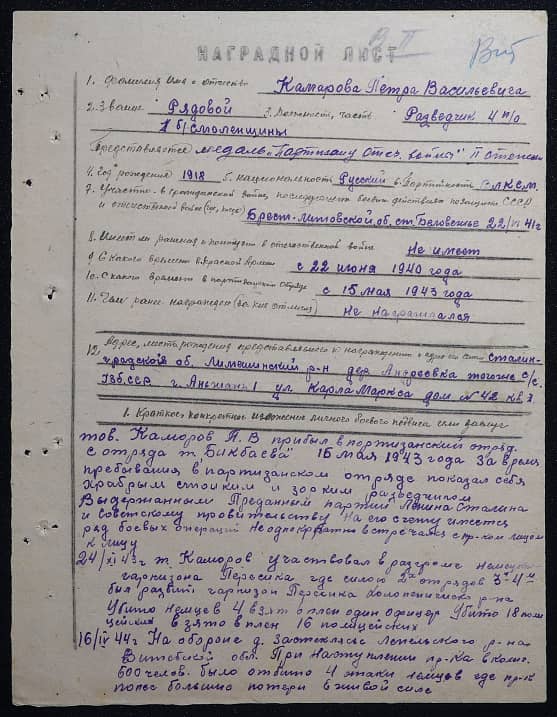 II
Вит
НАГРАДНОЙ ЛИСТ
1. Фамилия Имя и отчество Камарова Петра Васильевича
2. Звание Рядовой 3. Должность, часть Разведчик 4 п/о
1 б/Смоленщины
Представляется медаль "Партизану Отеч. войны" II степени
4. Год рождения 1918 5. Национальность Русский 6. Партийность ВЛКСМ
7. Участие в гражданской войне, последующих боевых действиях по защите СССР
и отечественной войне (где, когда) Брест-Литовской об, ст. Беловежье 22/VI 41г
8. Имеет ли ранения и контузии в отечественной войне Не имеет
9. С какого времени в Красной Армии с 22 июня 1940 года
10. С какого времени в партизанском отряде с 15 мая 1943 года
11. Чем ранее награжден (за какие отличия) не награждался
12. Адрес, место рождения представляемого к награждению и адрес его семьи Сталин-
градской об. р-н дер Андреевка того же с/с.
Узб.ССР г. ул. Карла Маркса дом № 42 кв
1. Краткое, конкретное изложение личного боевого подвига или заслуг
тов. Каморов П. В прибыл в партизанский отряд
с отряда т. Бикбаева 15 мая 1943 года За время
пребывания в партизанском отряде показал себя
храбрым стойким и зорким разведчиком
Выдержанным Преданным партии Ленина Сталина
и Советскому правительству На его счету имеется
ряд боевых операций Неоднократно встречался с пр-ком лицом
к лицу
24/XI 43г т. Каморов участвовал в разгроме немецкого
гарнизона Пересика где силою 2х отрядов 3 4
был разбит гарнизон Пересика р-на
Убито немцев 4 взят в плен один офицер Убито 18 поли
цейских в взято в плен 16 полицейских
16/IV 44г. На обороне д. Лепельского р-на
Витебской обл. При наступлении пр-ка в колич.
600 челов. было отбито 4 атаки немцев где пр-к
понес большие потери в живой силе